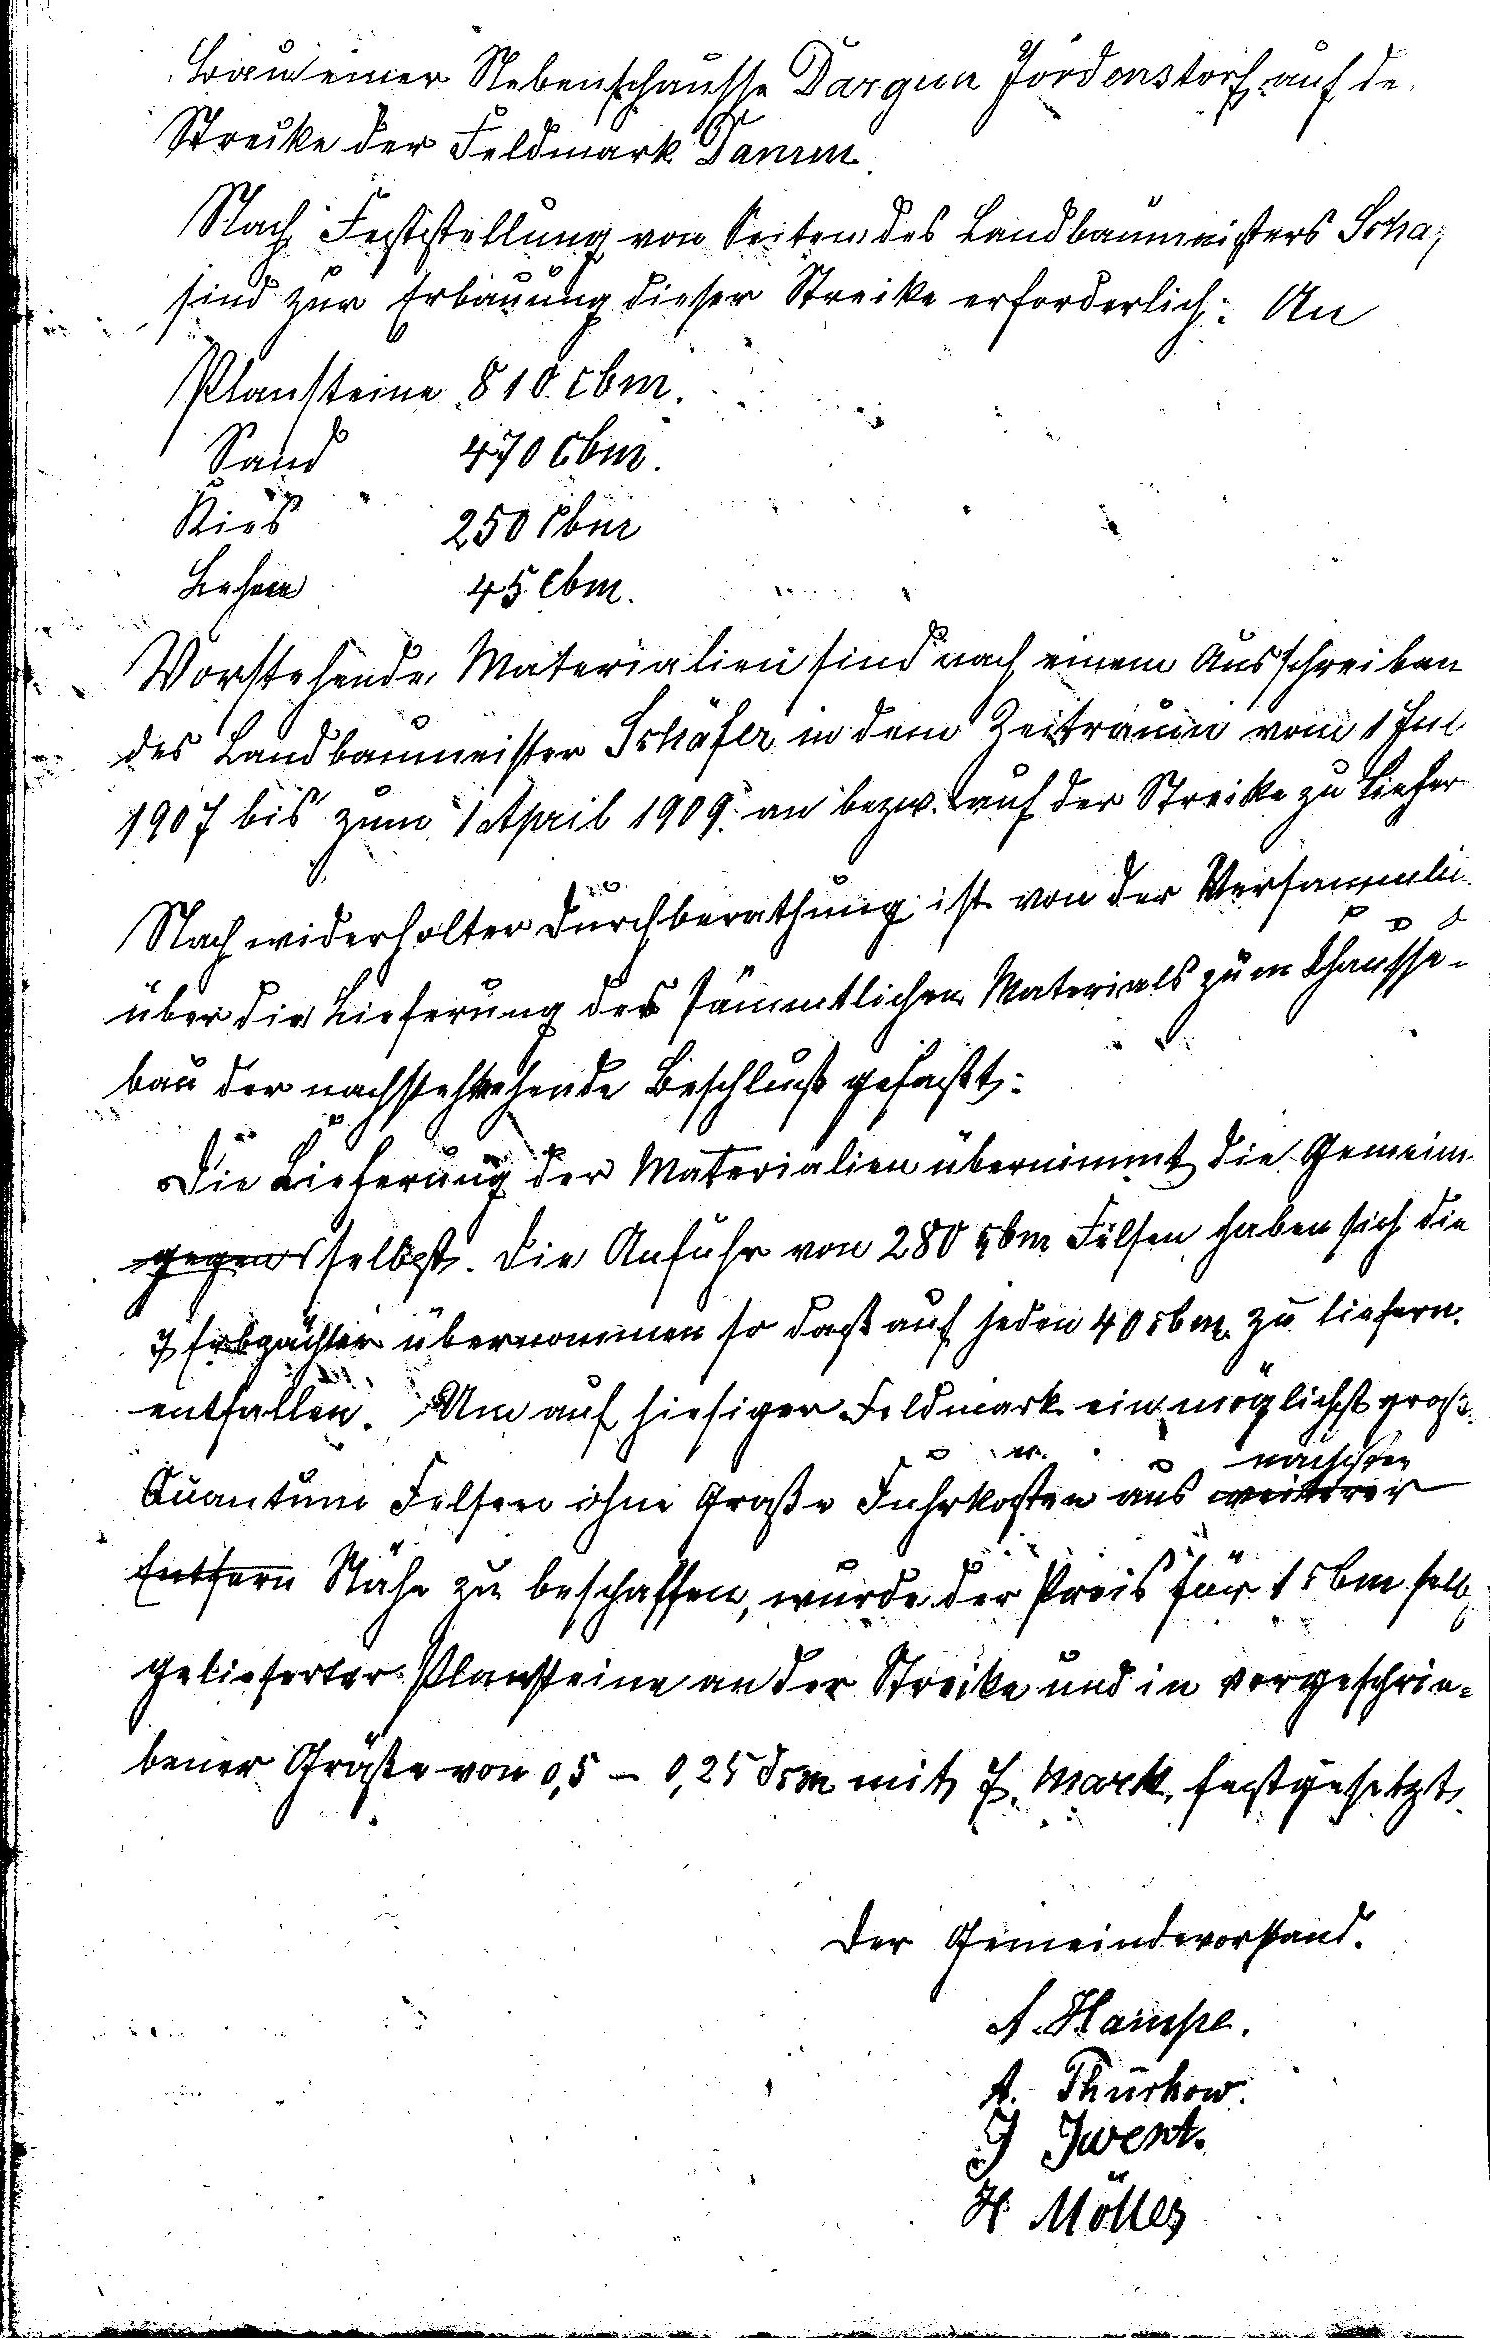 Bau einer Nebenschausse Dargun Jördenstorf auf de
Strecke der Feldmark Damm.
Nach Feststellung von Seiten des Landbaumeisters Schä
sind zur Erbauung dieser Strecke erforderlich: An
Plansteine 810 cbm.
Sand 470 cbm.
Kies 250 cbm
Lehm 45 cbm.
Vorstehende Materialien sind nach einem Ausschreiben
des Landbaumeister Schäfer in dem Zeitraum vom 1 Jul
1907 bis zum 1 April 1909. an bezw. auf der Strecke zu liefer
Nach widerholter Durchberathung ist von der Versammlu
über die Lieferung des sämmtlichen Materials zum Chausse-
bau der nachstehende Beschluß gefaßt:
Die Lieferung der Materialien übernimmt die Gemein
gegen selbst. Die Anfuhr von 280 cbm Felsen haben sich die
7 Erbpächter übernommen so daß auf jeden 40 cbm. zu liefern
entfallen. Um auf hiesiger Feldmark ein möglichst große
Quantum Felsen ohne große Fuhrkosten aus weiterer nächster
Entfern Nähe zu beschaffen, wurde der Preis für 1 cbm selb
gelieferter Plansteine an der Strecke und in vorgeschrie-
bener Größe von 0,5 – 0,25 dcm mit 7. Mark festgesetzt.
Der Gemeindevorstand.
A. Hampe.
A. Thürkow.
J Iwest.
H Möller